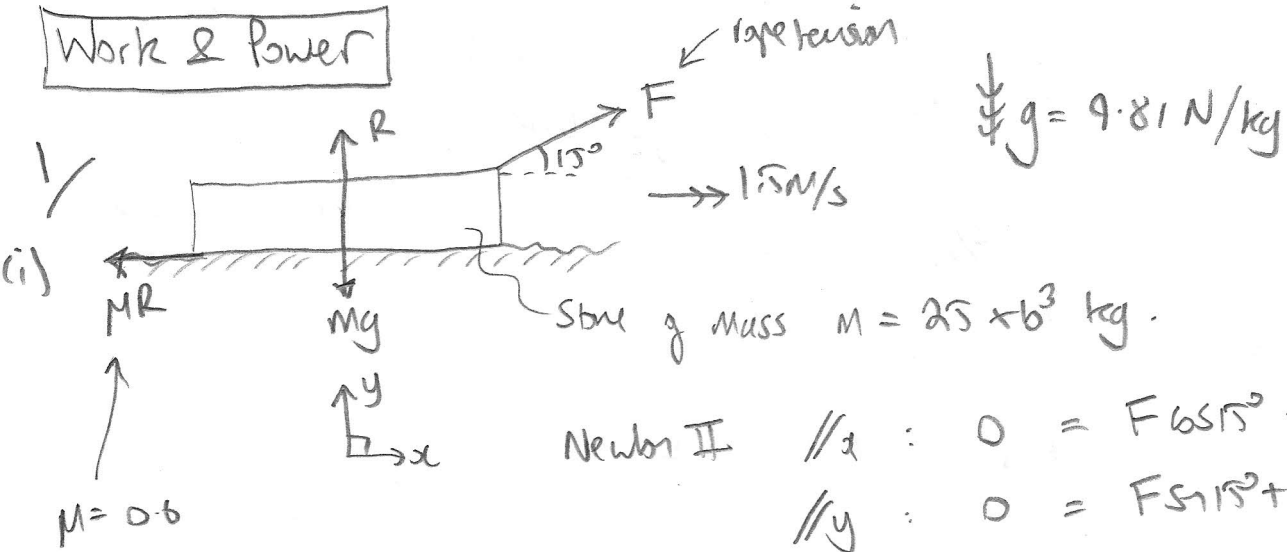 Work & Power
rope tension
F
g = 9.81 N/kg
R
15°
1.5m/s
1/
(i)
μR
Mg
Stone of mass M = 25 × 10³ kg.
y
x
Newton II //x : 0 = F cos15°
//y : 0 = F sin15° +
μ = 0.6